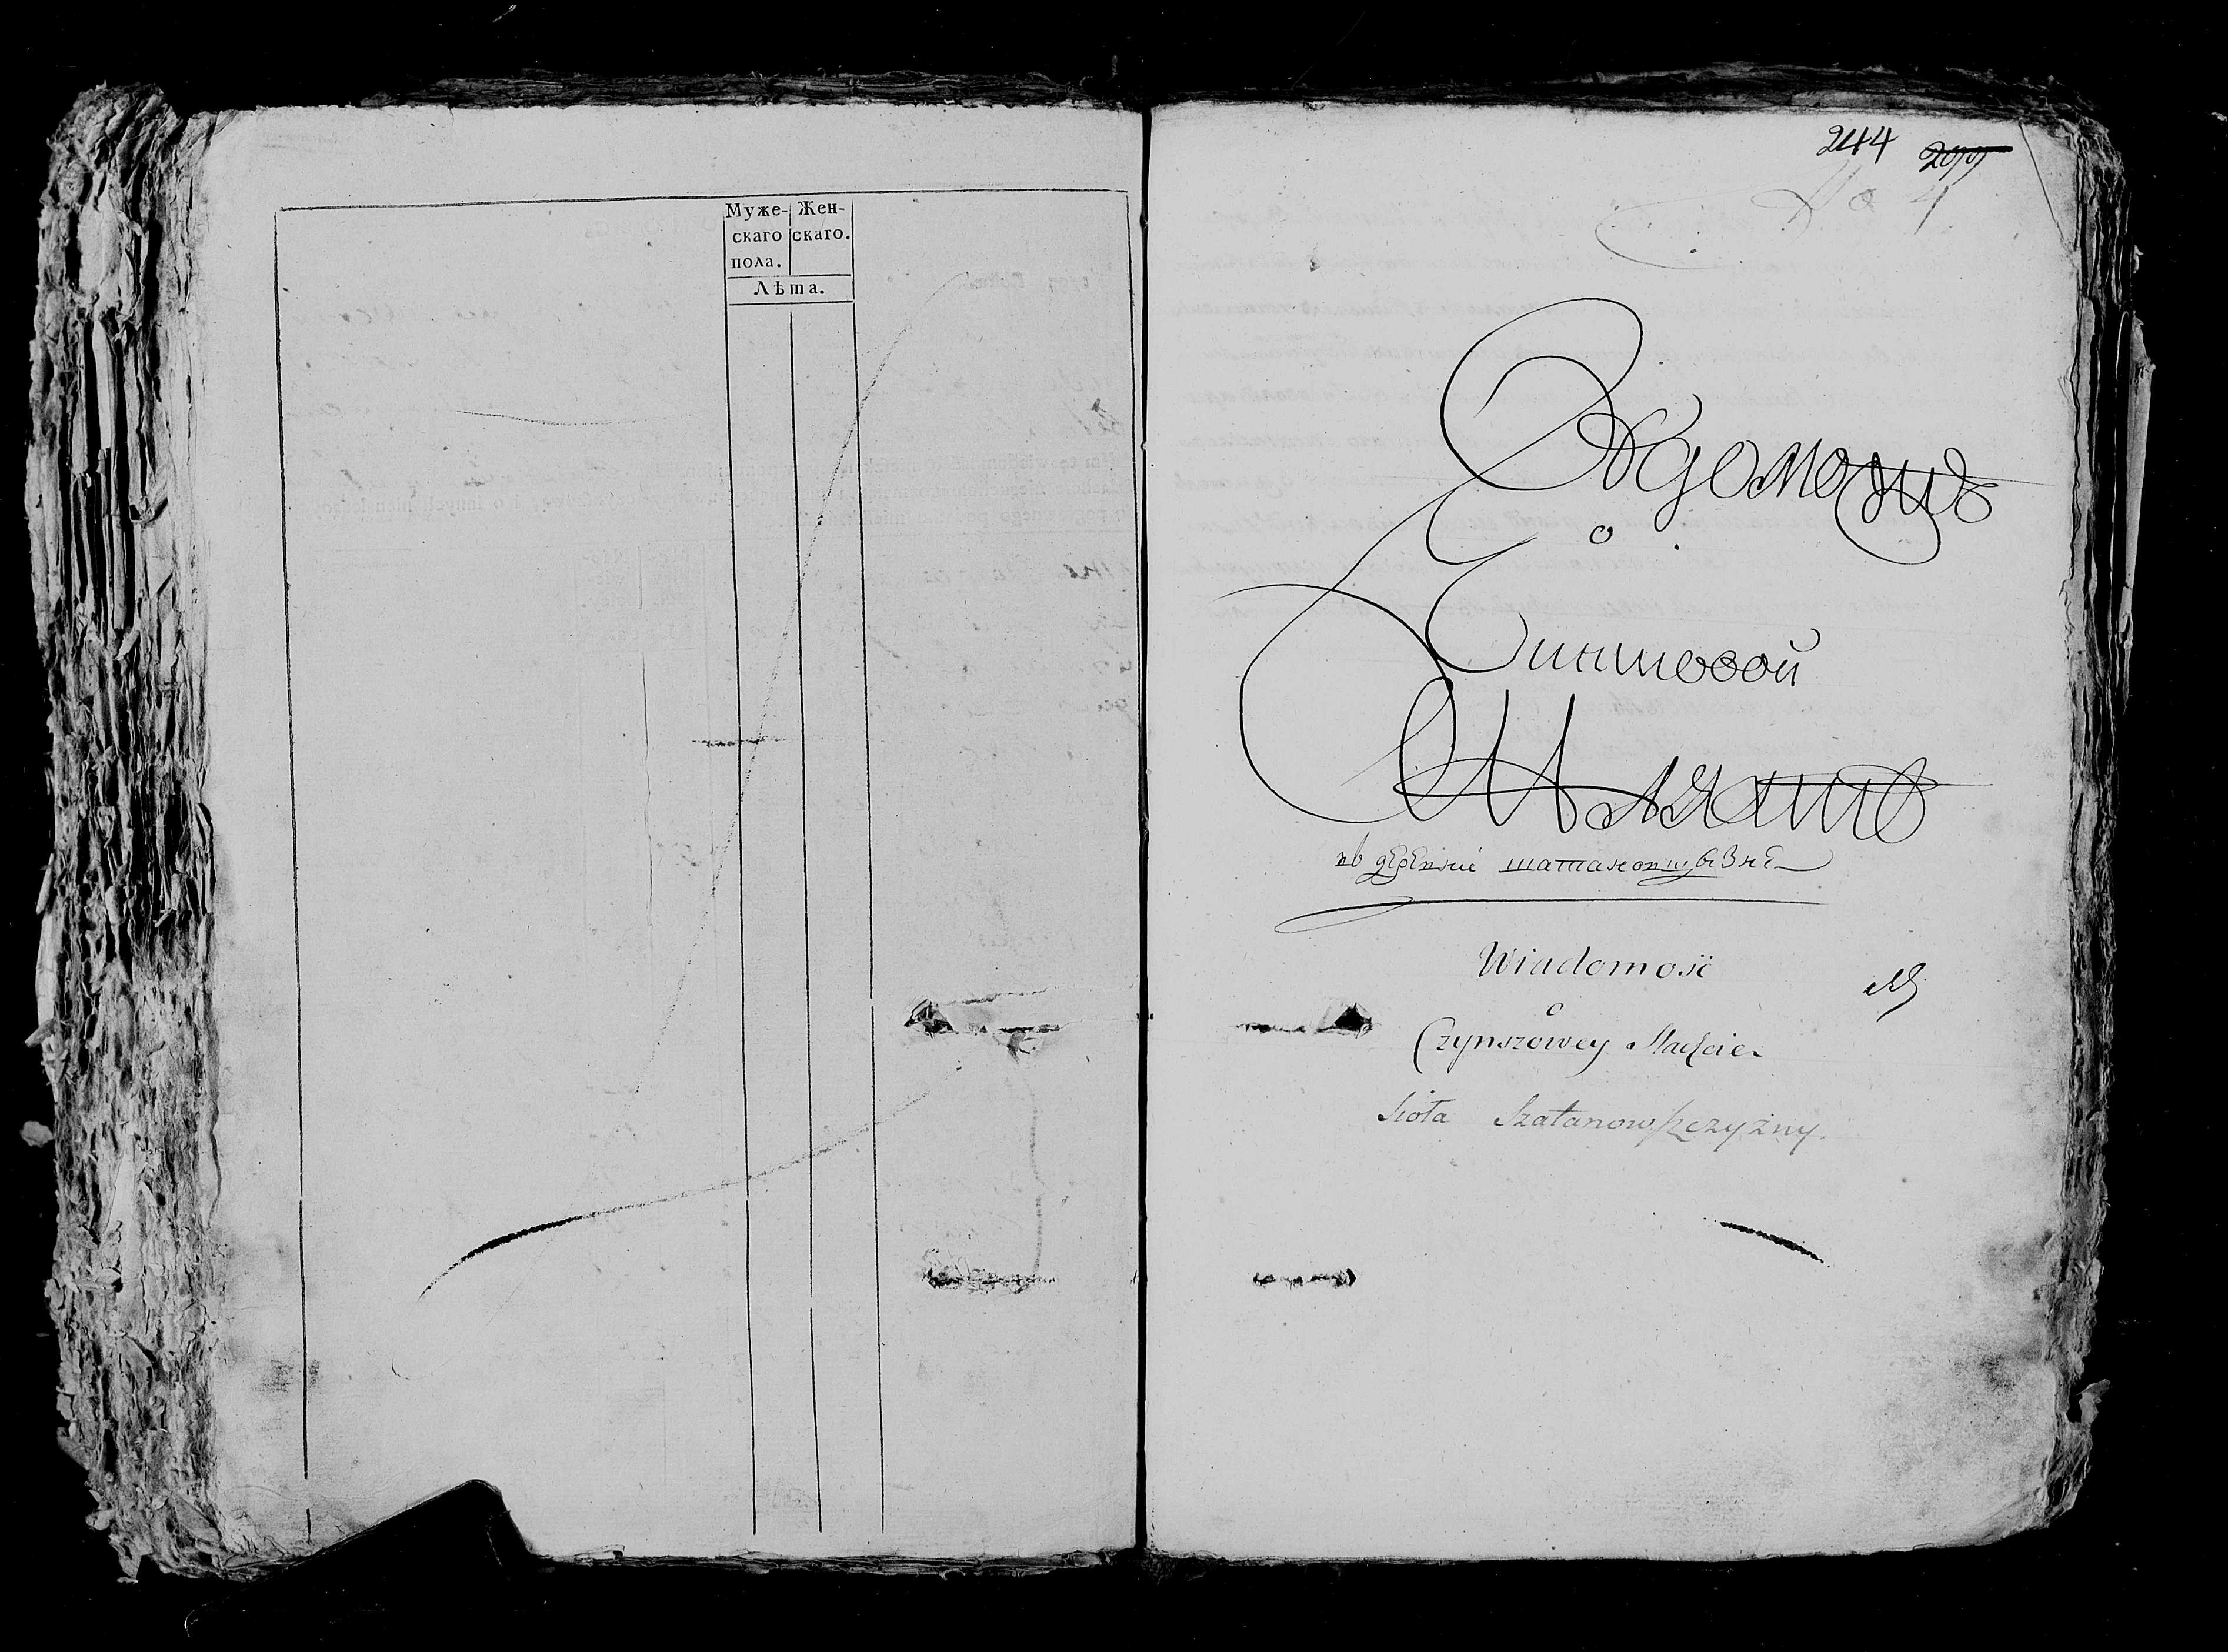 Муже- Жен-
скаго скаго.
пола.
Лѣта.
244 2077
No 4
Вѣдомость
о
Чиншовой
Шляхтѣ
въ деревни шатановщизнѣ
Wiadomość
o
Czynszowey Szlachcie
Sioła Szatanowszczyzny.